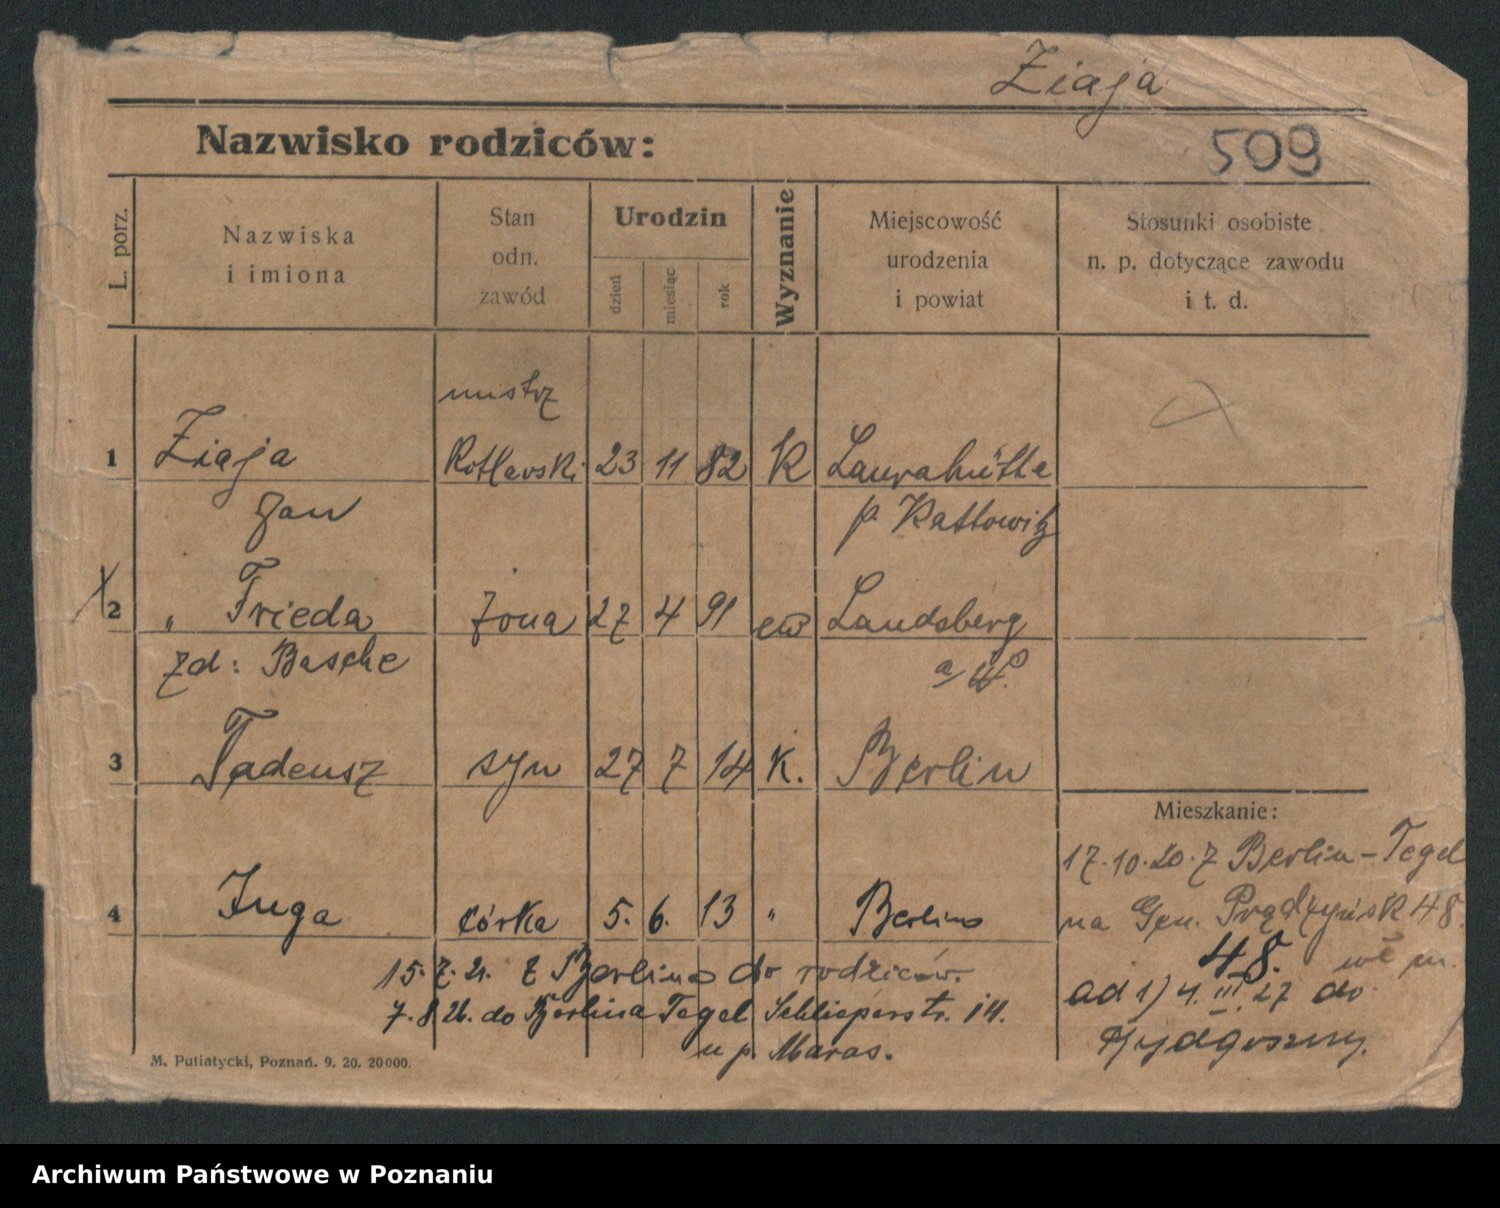 Ziaja
Nazwisko rodziców:
509
L. porz.
Nazwiska
i imiona
Stan
odn.
zawód
Urodzin
dzień
miesiąc
rok
Wyznanie
Miejscowość
urodzenia
i powiat
Stosunki osobiste
n. p. dotyczące zawodu
i t. d.
mistrz
1 Ziaja Kotlarski 23 11 82 K Laurahütte
Jan p. Kattowitz
2 " Frieda żona 27 4 91 ew Landsberg
zd: Basche a/W.
3 Tadeusz syn 27 7 14 K. Berlin
Mieszkanie:
17.10.20. z Berlin-Tegel
na Gen. Prądzyńsk 48.
4 Inga córka 5. 6. 13 " Berlin
48.
15.7.21. z Berlina do rodziców.
ad 1) 4.III.27 do
7.8.26. do Berlina Tegel Schlieperstr. 14.
Bydgoszczy.
u p. Maras.
M. Putiatycki, Poznań. 9. 20. 20000.
Archiwum Państwowe w Poznaniu